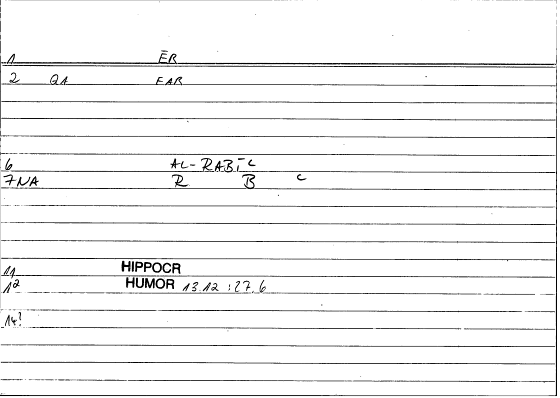 1 ĒR
2 QA FAR
6 AL-RABĪC
7NA R B C
11 HIPPOCR
12 HUMOR 13.12 :27.6
14?